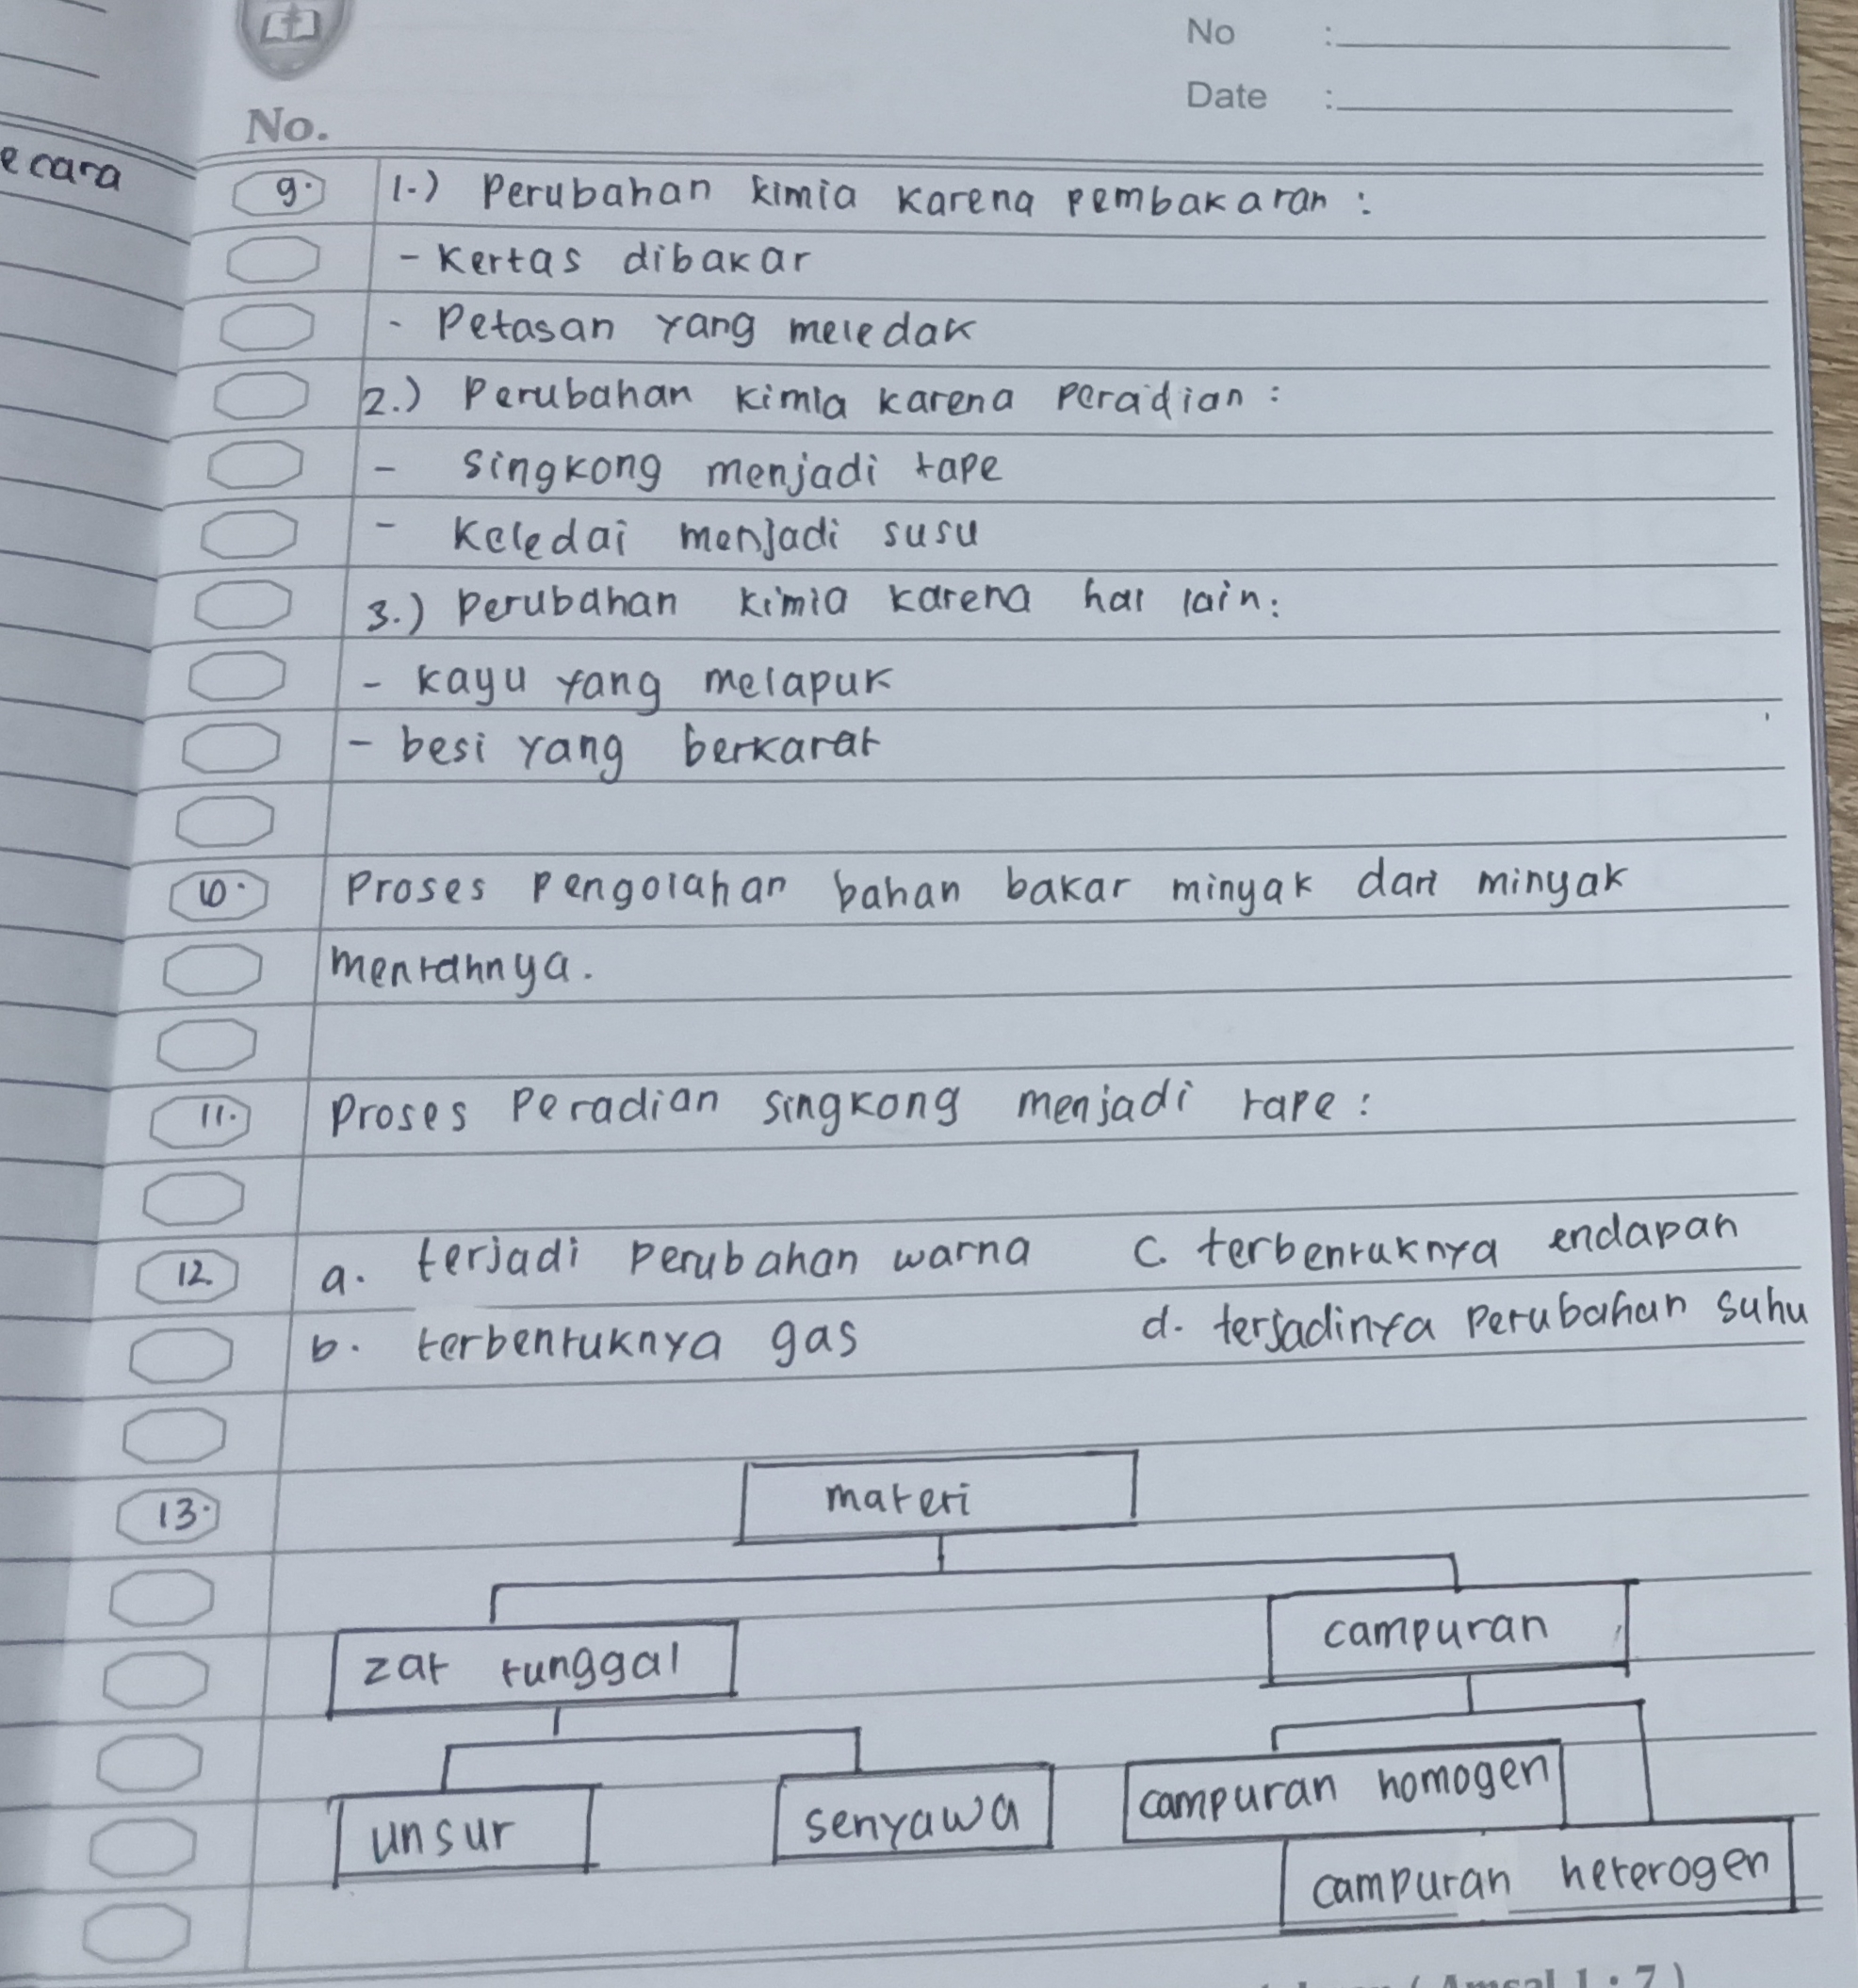 No :
Date :
No.
ecara
9. 1.) Perubahan kimia karena pembakaran :
- Kertas dibakar
- Petasan yang meledak
2.) Perubahan kimia karena peradian :
- singkong menjadi tape
- Keledai menjadi susu
3.) perubahan kimia karena hal lain:
- kayu yang melapuk
- besi yang berkarat
10. Proses pengolahan bahan bakar minyak dari minyak
mentahnya.
11. Proses Peradian singkong menjadi tape :
12. a. terjadi perubahan warna c. terbentuknya endapan
b. terbentuknya gas d. terjadinya perubahan suhu
13. materi
zat tunggal campuran
unsur senyawa campuran homogen
campuran heterogen
( Amsal 1 : 7 )